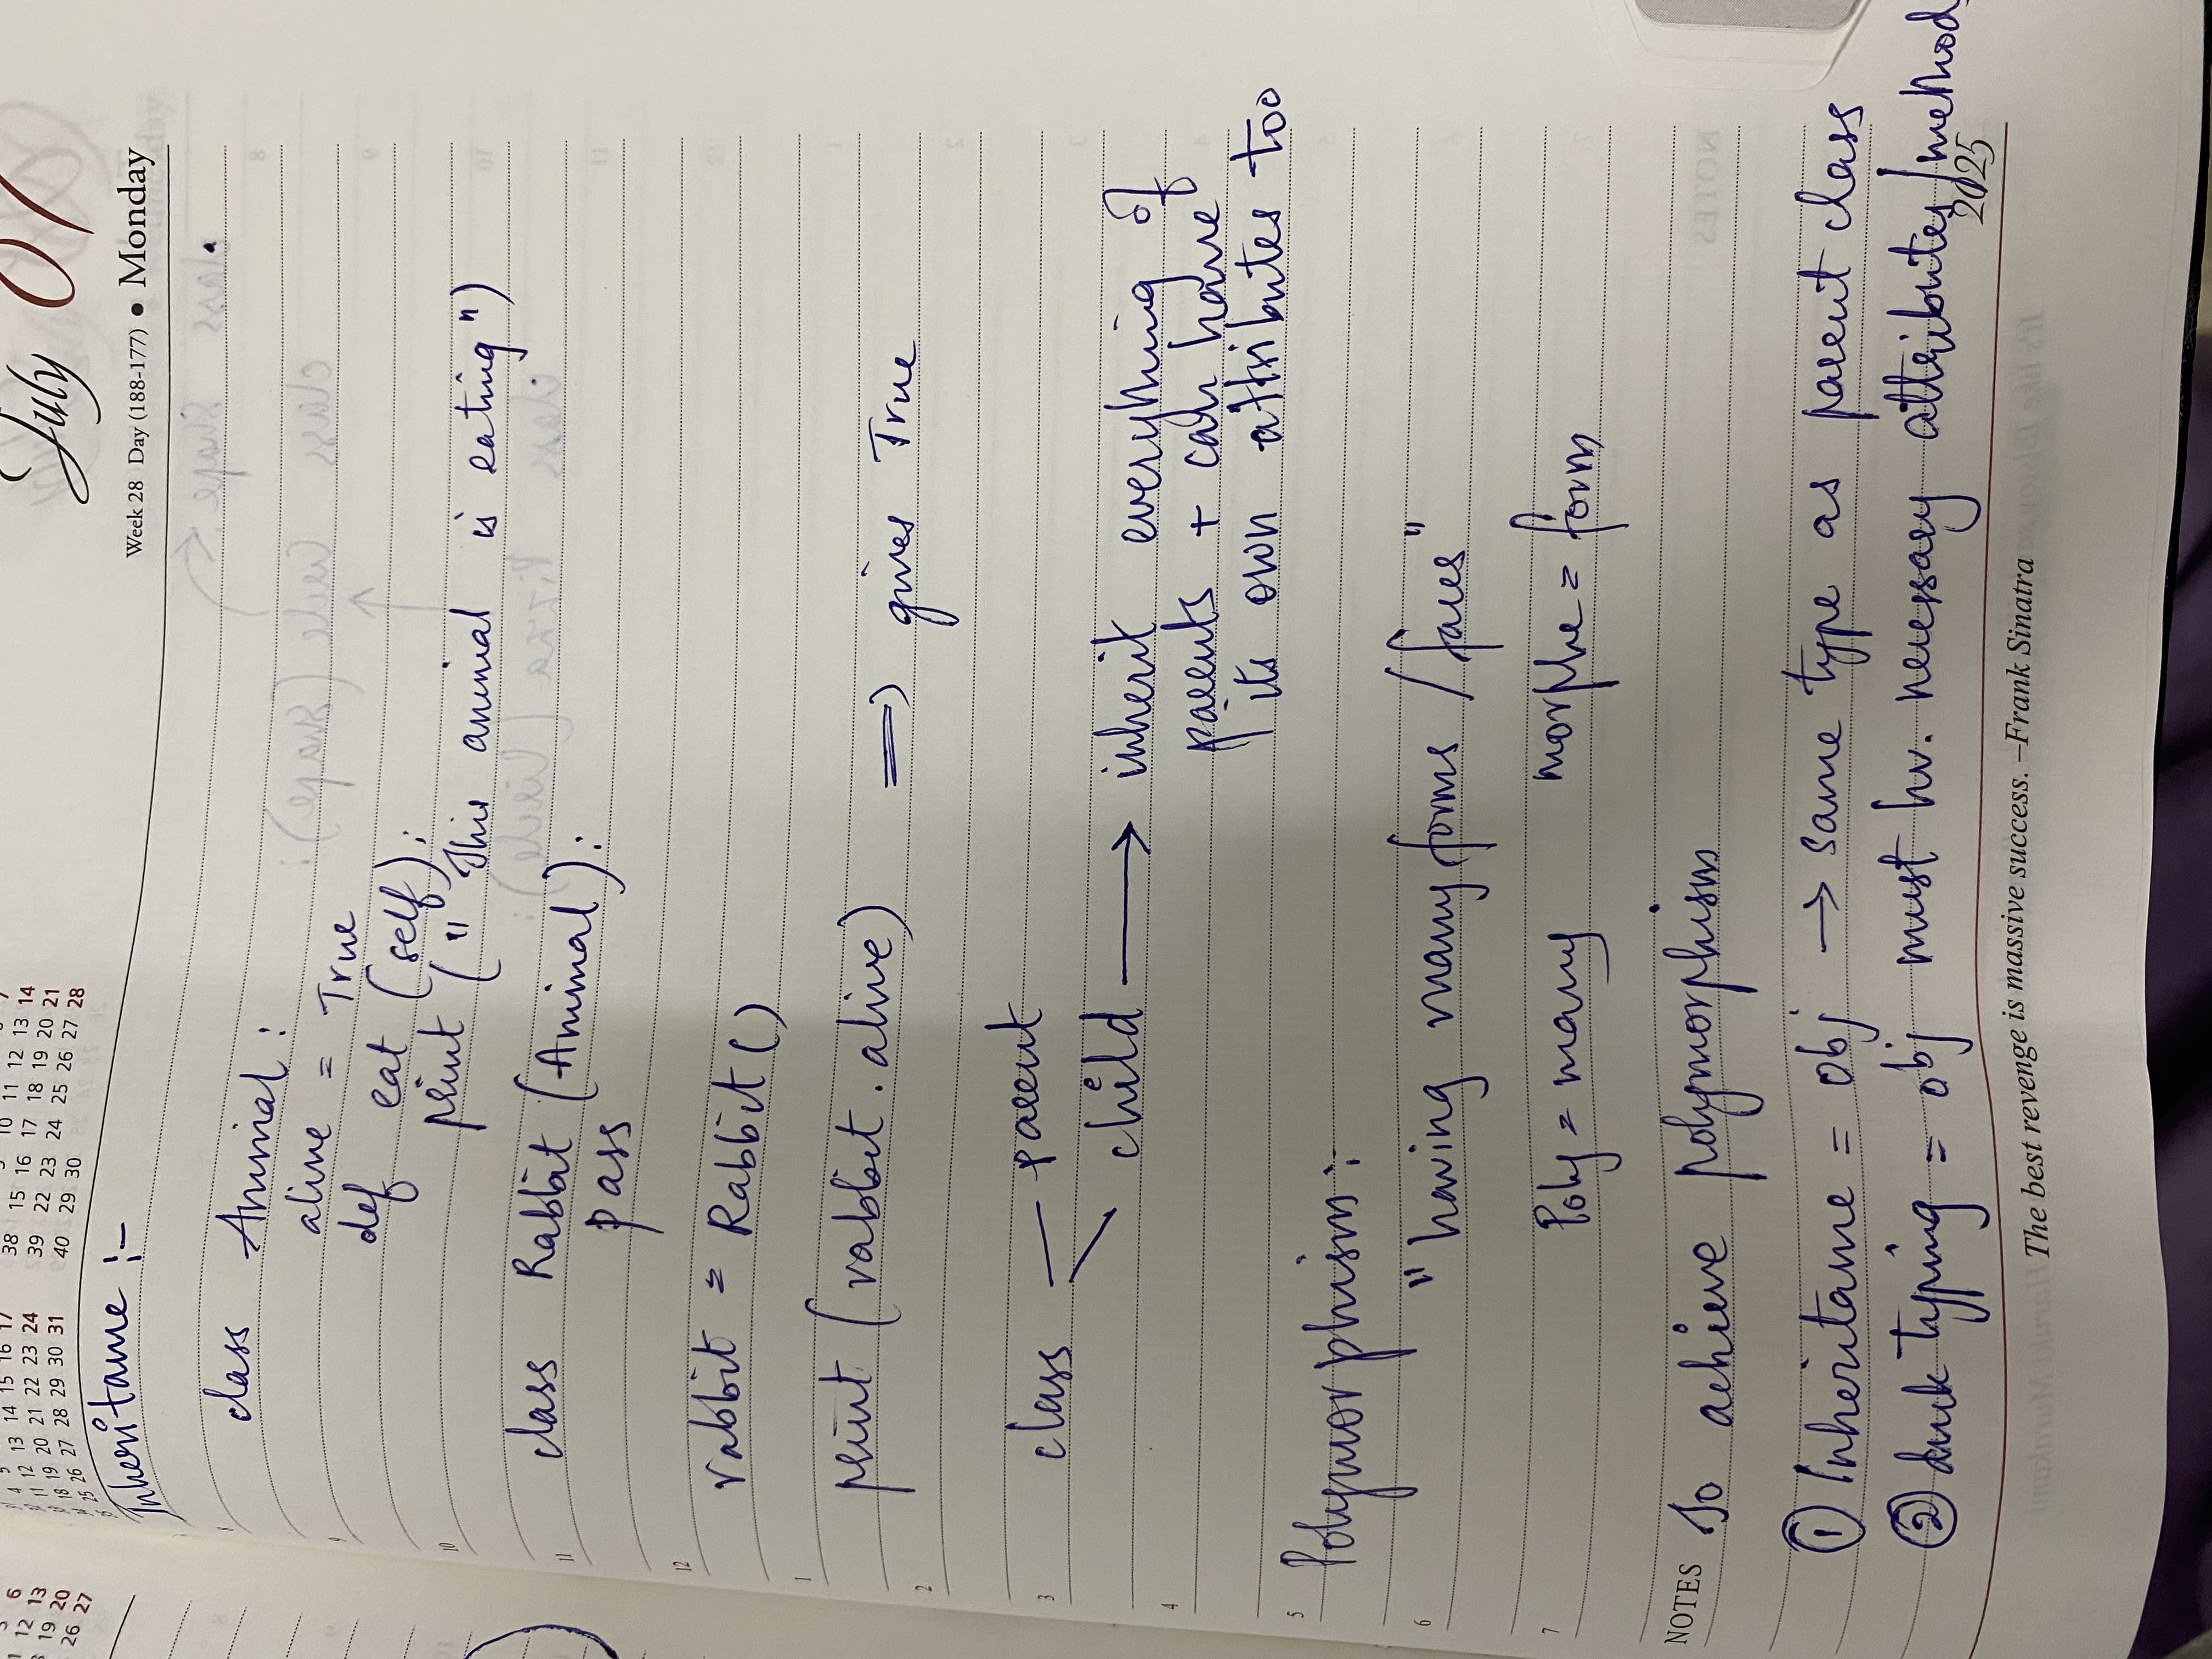 6
12 13
19 20
26 27
4 5 13 14 15 16 17
11 12 13 14 15 16 17
18 19 20 21 22 23 24
25 26 27 28 29 30 31
38 15 16 10 11 12 13 14
39 22 23 17 18 19 20 21
40 29 30 24 25 26 27 28
July 07
Week 28 Day (188-177) • Monday
Inheritance :-
class Animal :
alive = True
def eat (self):
print (" This animal is eating")
class Rabbit (Animal):
pass
rabbit = Rabbit()
print (rabbit.alive) => gives True
class — parent
child → inherit everything of
parents + can have
its own attributes too
Polymorphism:-
"having many forms / faces"
Poly = many morphe = form
NOTES To achieve polymorphism
① Inheritance = obj → same type as parent class
② duck typing = obj must hv. necessary attributes/methods
2025
The best revenge is massive success. –Frank Sinatra